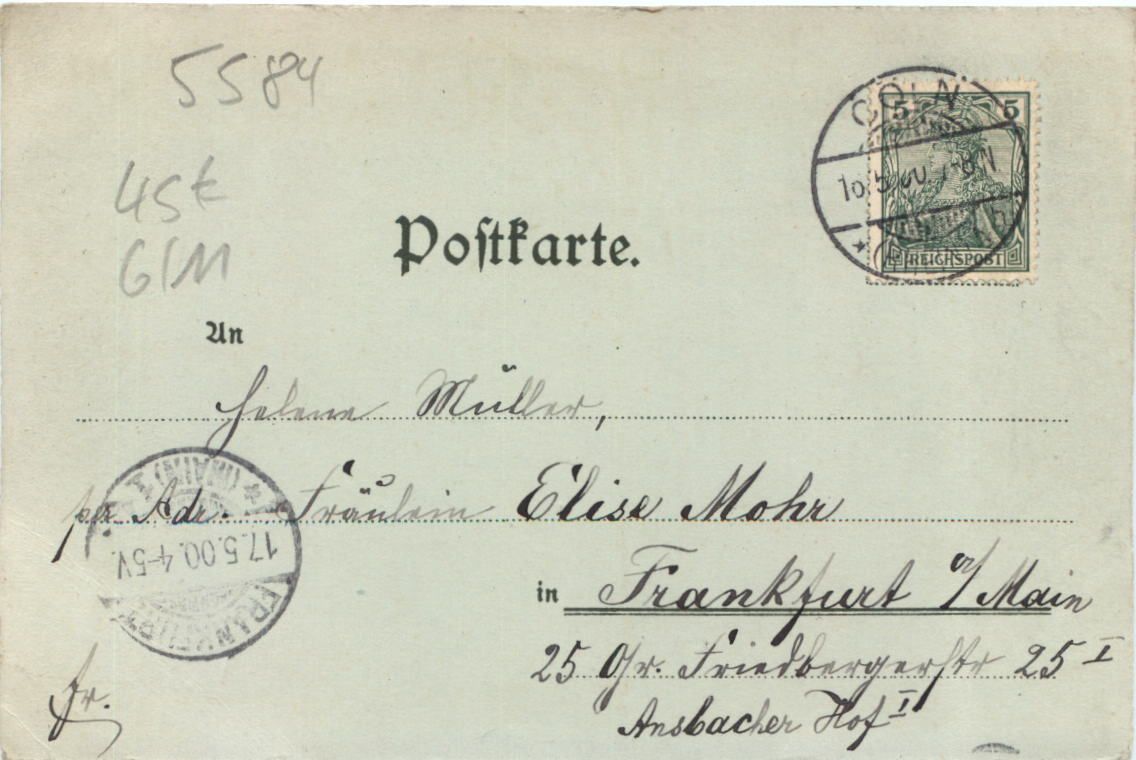 5584
45t
6/11
CÖLN
16.5.00.7-8N
* (RHEIN)
5 5
REICHSPOST
Postkarte.
An
Helene Müller,
per Adr. Fräulein Elise Mohr
in Frankfurt a/Main
25 Gr. Friedbergerstr 25 I
Ansbacher Hof I
fr.
FRANKFURT
17.5.00.4-5V.
* (MAIN) 1